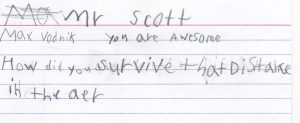 Mr Scott
Mar Vodnik you are Awesome
How did you survive that DiStance
in the aer